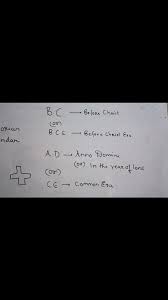 B.C → Before Christ
(or)
BCE → Before Christ Era
A.D → Anno Domini
(or) in the year of lord
(or)
CE → Common Era